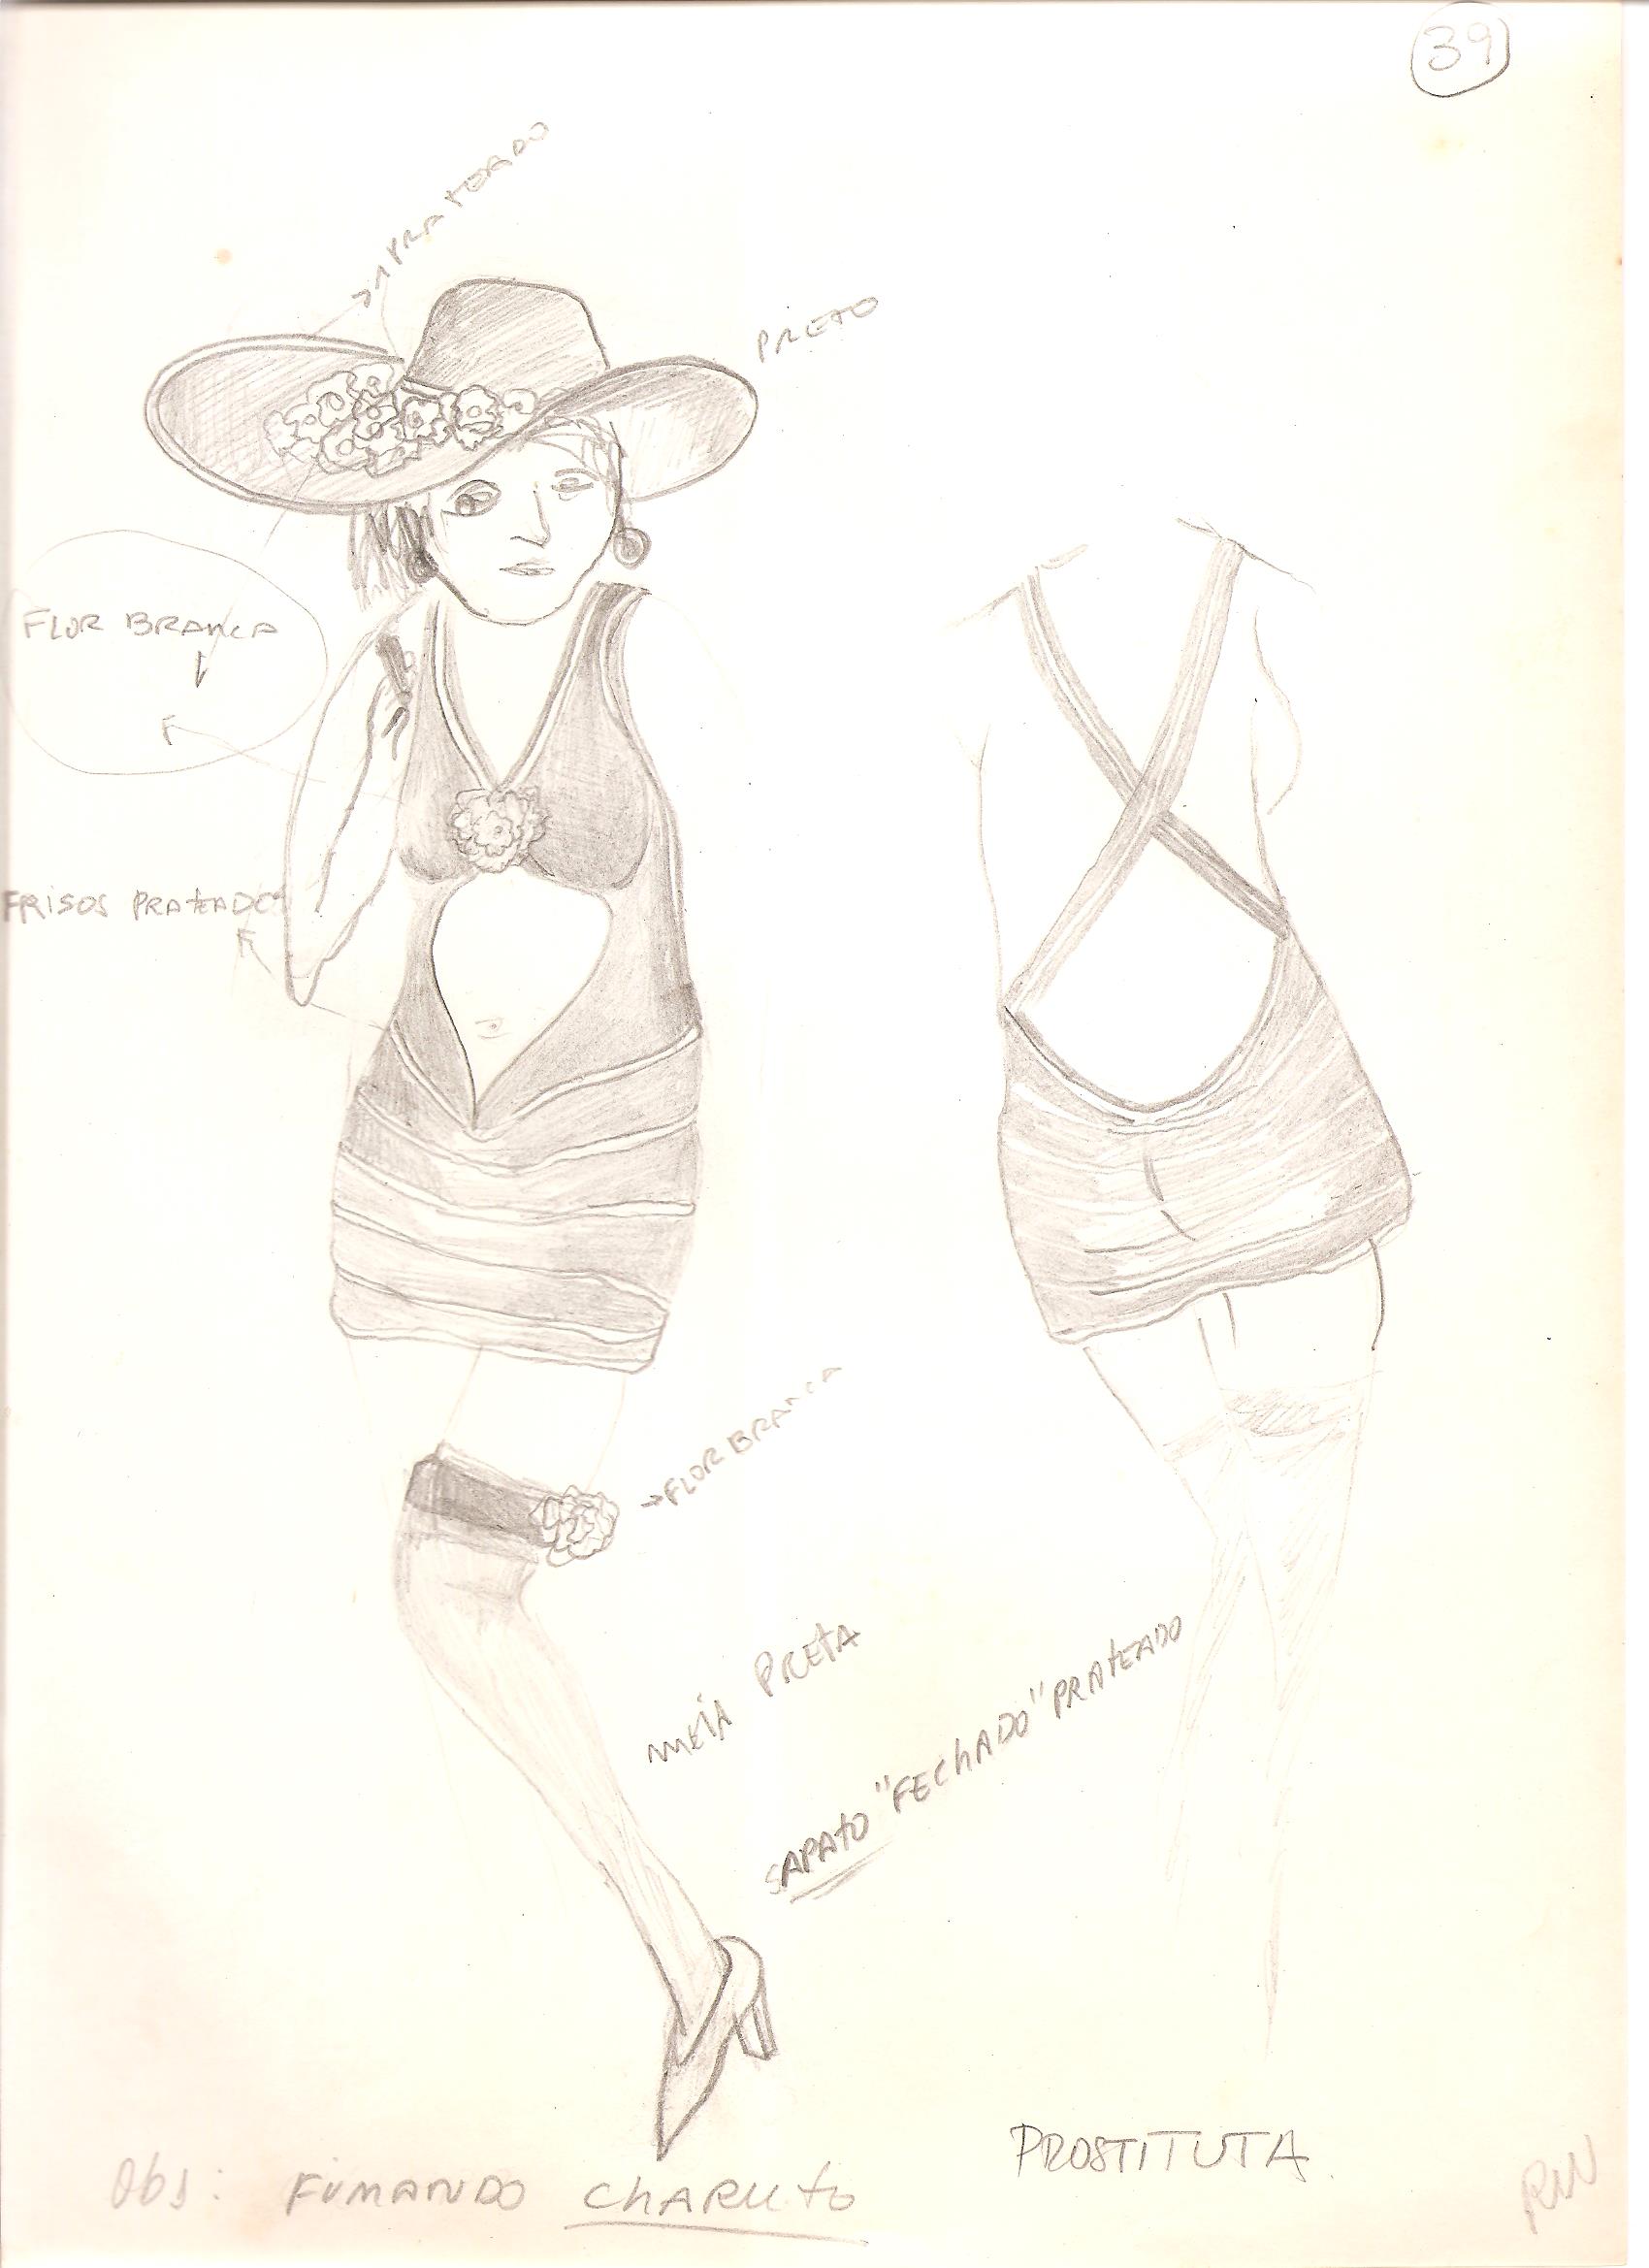 39
PRATEADO
PRETO
FLOR BRANCA
FRISOS PRATEADO
FLOR BRANCA
MEIA PRETA
SAPATO "FECHADO" PRATEADO
PROSTITUTA.
Obs: FUMANDO CHARUTO